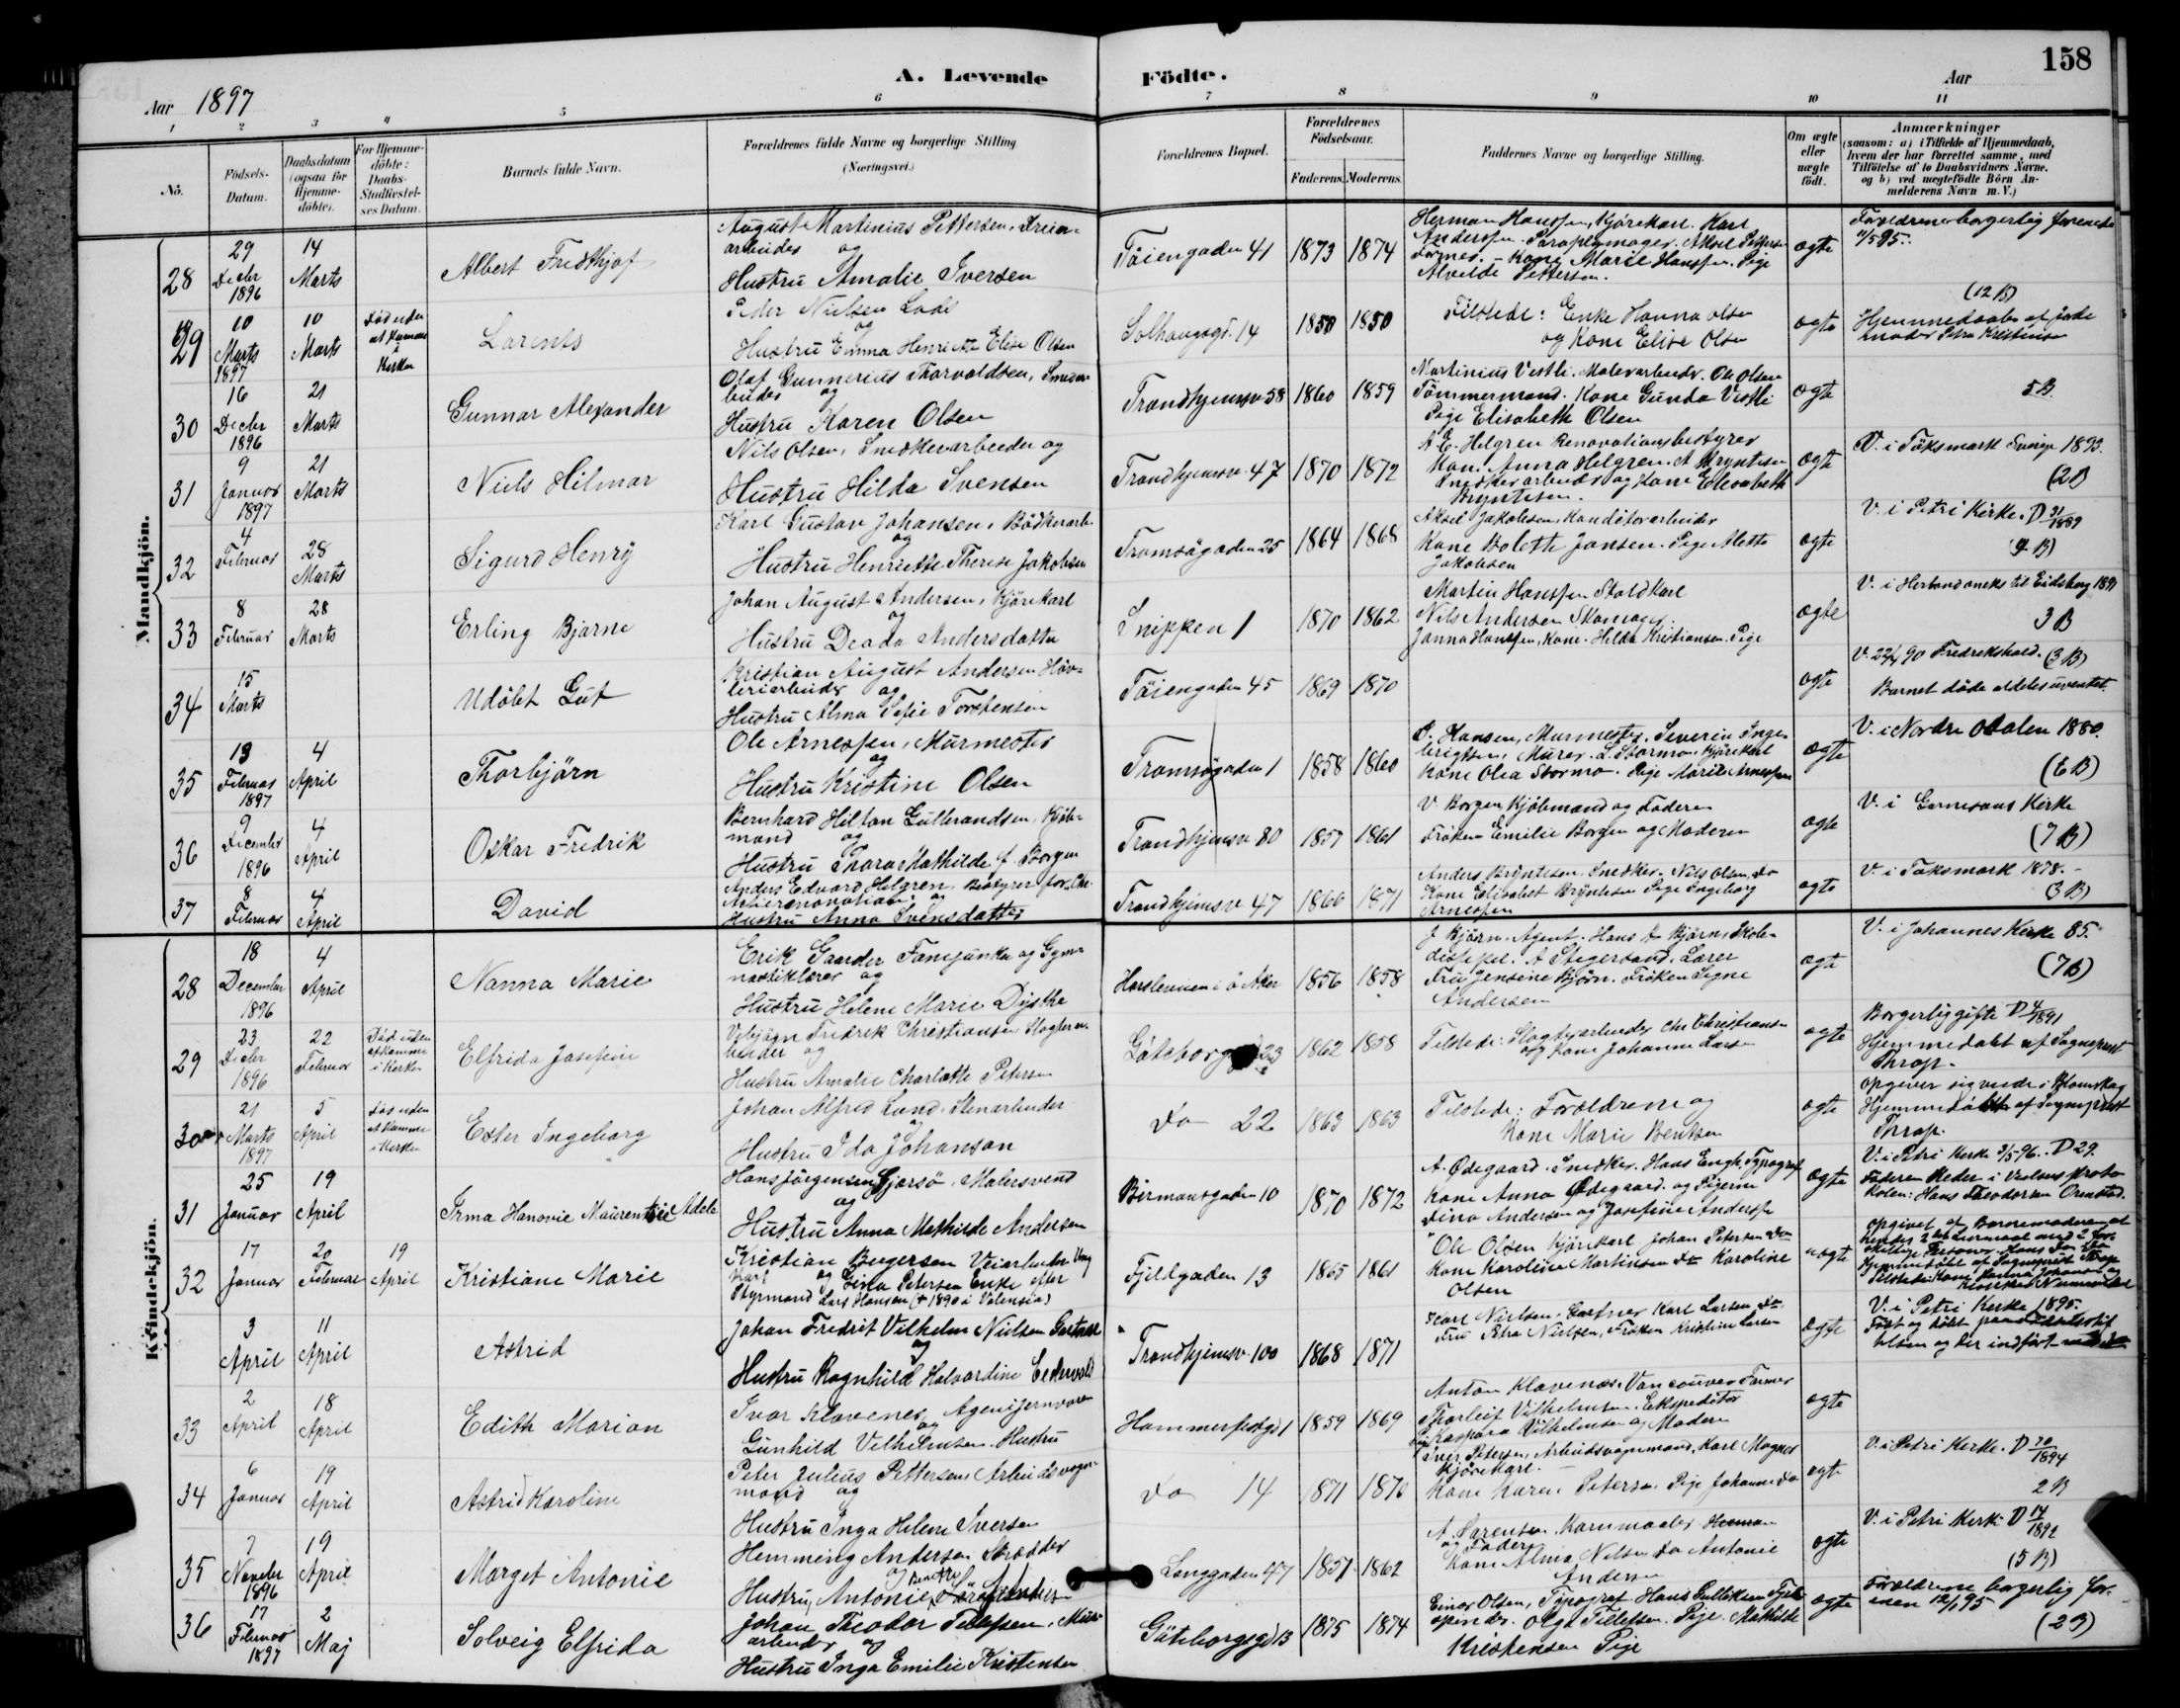 158
A. Levende Födte.
Aar 1897
Aar
1 2 3 4 5 6 7 8 9 10 11
No.
Födsels-Datum.
Daabsdatum (ogsaa for Hjemmedöbte).
For Hjemmedöbte: Daabs-Stadfæstelses Datum.
Barnets fulde Navn.
Forældrenes fulde Navne og borgerlige Stilling (Næringsvei.)
Forældrenes Bopæl.
Forældrenes Födselsaar.
Faderens. Moderens.
Faddernes Navne og borgerlige Stilling.
Om ægte eller uægte födt.
Anmærkninger (saasom: a) i Tilfælde af Hjemmedaab, hvem der har forrettet samme, med Tilföielse af to Daabsvidners Navne. og b) ved uægtefödte Börn Anmelderens Navn m. V.)
Mandkjön.
28
29 Decbr 1896
14 Marts
Albert Fredthjof
August Martinius Pettersen,
arbeider og
Hustru Amalie Iversen
Töiengaden 41
1873 1874
Herman Hanssen, Kjörekarl. Karl
Anderssen. Paraplymager. Aksel Pettersen
Former. - Kone Marie Hanssen. Pige
Alvilde Pettersen.
ægte
Forældrene borgerlig forenede
11/5 95.
29
10 Marts 1897
10 Marts
Död uden at komme i Kirken
Larents
Peder Nielsen Lods
og
Hustru Emma Henriette Elise Olsen
Solhaugsgt. 14
1850 1850
Tilstede: Enke Hanna Olsen
og Kone Elise Olsen
ægte
(12 B)
Hjemmedöbt af jorde
moder Petra Kristiansen
30
16 Decbr 1896
21 Marts
Gunnar Alexander
Olaf Gunnerius Thorvaldsen, Smedar
beider og
Hustru Karen Olsen
Trondhjemsv 58
1860 1859
Martinius Vestli. Malerarbeider. Ole Olsen
Tömmermand. Kone Gunda Vestli
Pige Elisabeth Olsen
ægte
5 B.
31
9 Januar 1897
21 Marts
Niels Hilmar
Nils Olsen, Snedkerarbeider og
Hustru Hilda Svensen
Trondhjemsv. 47
1870 1872
A. E. Helgren Renovationsbestyrer
Kone Anna Helgren. A Bryntesen
Snedkerarbeider og Kone Elisabeth
Bryntesen.
ægte
V. i Töksmark Sverige 1893.
(2 B)
32
4 Februar
28 Marts
Sigurd Henry
Karl Gustav Johansen, Bödkerarb.
og
Hustru Henriette Therese Jakobsen
Tromsögaden 25
1864 1868
Aksel Jakobsen, Konditorarbeider
Kone Bolette Jansen. Pige Alette
Jakobsen
ægte
V. i Petri Kirke. D 31/1889
(4 B)
33
8 Februar
28 Marts
Erling Bjarne
Johan August Andersen, Kjörekarl
og
Hustru Deada Andersdatter
Snippen 1
1870 1862
Martin Hanssen Staldkarl
Nils Andersen Skomager.
Janna Hanssen, Kone. Hilda Kristiansen. Pige
ægte
V. i Herland aneks til Eidsberg 1891
3 B
34
15 Marts
Udöbt Gut
Kristian August Andersen Höv-
leriarbeider og
Hustru Alma Sofie Torstensen
Töiengaden 45
1869 1870
ægte
V. 22/4 90 Fredrikshald. (3 B)
Barnet döde aldeles uventet.
35
13 Februar 1897
4 April
Thorbjörn
Ole Arnessen, Murmester
og
Hustru Kristine Olsen
Tromsögaden 1
1858 1860
O. Hansen, Murmester. Severin Inge-
brigtsen, Murer. L. Stormo, Kjörekarl
Kone Olea Stormo. Pige Marie Arnessen
ægte
V. i Nordre Odalen 1880.
(6 B)
36
9 December 1896
4 April
Oskar Fredrik
Bernhard Hilton Gulbrandsen, Kjöb-
mand og
Hustru Thora Mathilde f. Borgen
Trondhjemsv 80
1857 1861
V Borgen, Kjöbmand og Faderen
Fröken Emilie Borgen og Moderen
ægte
V. i Garnisons Kirke
(7 B)
37
8 Februar
4 April
David
Anders Edvard Helgren, Bestyrer for Chr.
og
Hustru Anna Svensdatter
Trondhjemsv 47
1866 1871
Anders Bryntesen, Snedker. Nils Olsen, Do
Kone Elisabet Bryntesen Pige Ingeborg
Arnessen
ægte
V. i Töksmark 1878.-
(3 B)
Kvindekjön.
28
18 December 1896
4 April
Nanna Marie
Erik Gaarder Fanejunker og Gym-
nastiklærer og
Hustru Helene Marie Dysthe
Hasleveien i Ö Aker
1856 1858
J Bjørn. Agent. Hans A Bjørn, Skole-
discipel. A Stigersand. Lærer
Fru Jensine Bjørn. Fröken Signe
Andersen
ægte
V. i Johannes Kirke 85.
(7 B)
29
23 Decbr 1896
22 Februar
Död uden at komme i Kirken
Elfrida Josefine
Fredrik Christiansen Slagterar-
beider og
Hustru Amalie Charlotte Petersen
Göteborggd 23
1862 1858
Tilstede: Slagterarbeider Chr Christiansen
og Kone Johanne Larsen
ægte
Borgerlig gifte D 4/1891
Hjemmedöbt af Sogneprest
Thrap.
30
21 Marts 1897
5 April
Död uden at komme i Kirken
Ester Ingeborg
Johan Alfred Lund, Stenarbeider
og
Hustru Ida Johanson
Do 22
1863 1863
Tilstede: Forældrene og
Kone Marie Bentsen
ægte
opgiver sig viede i Blomskog
Hjemmedöbt af Sogneprest
Thrap.
31
25 Januar
19 April
Irma Hanovie Maurentzie Adele
Hans Jörgensen Gjersö, Malersvend
og
Hustru Anna Mathilde Andersen
Biermansgaden 10
1870 1872
A. Ödegaard. Snedker. Hans Engh, Typograf
Kone Anna Ödegaard. og Pigerne
Dina Andersen og Josefine Anderssen
ægte
V. i Petri Kirke 3/5 96. D 29.
Faderen heder i Vielses proto
kolen: Hans Theodorsen Ormstad.
32
17 Januar
20 Februar
19 April
Kristiane Marie
Kristian Birgersen Veiarbeider Ung
karl og Gina Petersen Enke efter
Styrmand Lars Hansen († 1890 i Valensia)
Fjeldgaden 13
1865 1861
Ole Olsen Kjörekarl. Johan Petersen Do
Kone Karoline Martinsen Do Karoline
Olsen
uægte
opgivet af Barnemoderen at
hendes 2det Leiermaal med 2 for-
skellige Personer. Hans
Hjemmedöbt af Sogneprest Thrap
Tilstede: Kone Hanna Johansen og
3 April
11 April
Astrid
Johan Fredrik Vilhelm Nielsen Gartner
og
Hustru Ragnhild Halvardine Cedervald
Trondhjemsv. 100
1868 1871
Karl Nielsen, Gartner Karl Larsen Do
Fru Petra Nielsen, Fröken Kristine Larsen
ægte
V. i Petri Kirke 1895.
Födt og döbt paa Födselsstif-
telsen og der indfört
33
2 April
18 April
Edith Marion
Ivar Klavenes, Agent
og
Gunhild Vilhelmsen. Hustru
Hammerfestgd 1
1859 1869
Anton Klavenes, Vancouver Farmer
Thorleif Vilhelmsen. Ekspeditör
Kaspara Vilhelmsen og Moderen
ægte
34
6 Januar
19 April
Astrid Karoline
Peter Julius Pettersen, Arbeidsvogn-
mand og
Hustru Inga Helene Iversen
Do 14
1871 1870
Iver Petersen, Arbeidsvognmand, Karl Magnus
Kjörekarl.-
Kone Karen Petersen. Pige Johanne Do
ægte
V. i Petri Kirke. D 70/1894
2 B
35
7 Novebr 1896
19 April
Marget Antonie
Hemming Andersen Skrædder
og
Hustru, Antonie
Langgaden 47
1857 1862
A. Sörensen Kornmaaler Herman
og Faderen
Kone Alma Nilsen Do Antonie
Andersen
ægte
V. i Petri Kirke D 14/1892
(5 B)
36
17 Februar 1897
2 Maj
Solveig Elfrida
Johan Theodor Tellefsen, Mur
arbeider og
Hustru Inga Emilie Kristensen
Göteborgsgd 13
1875 1874
Einar Olsen, Typograf. Hans Gulliksen
Olga Tellefsen. Pige Mathilde
Kristensen Pige
ægte
Forældrene borgerlig for-
enen 12/1 95
(2 B)